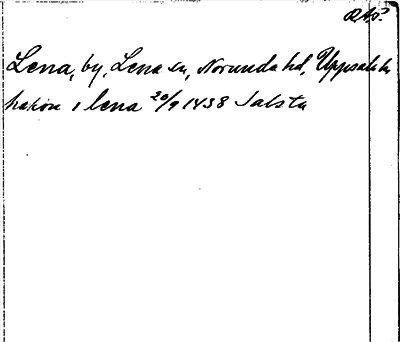 RAp?
Lena, by, Lena sn, Norunda hd, Uppsala ln
hakon i lena 20/9 1438 Salsta